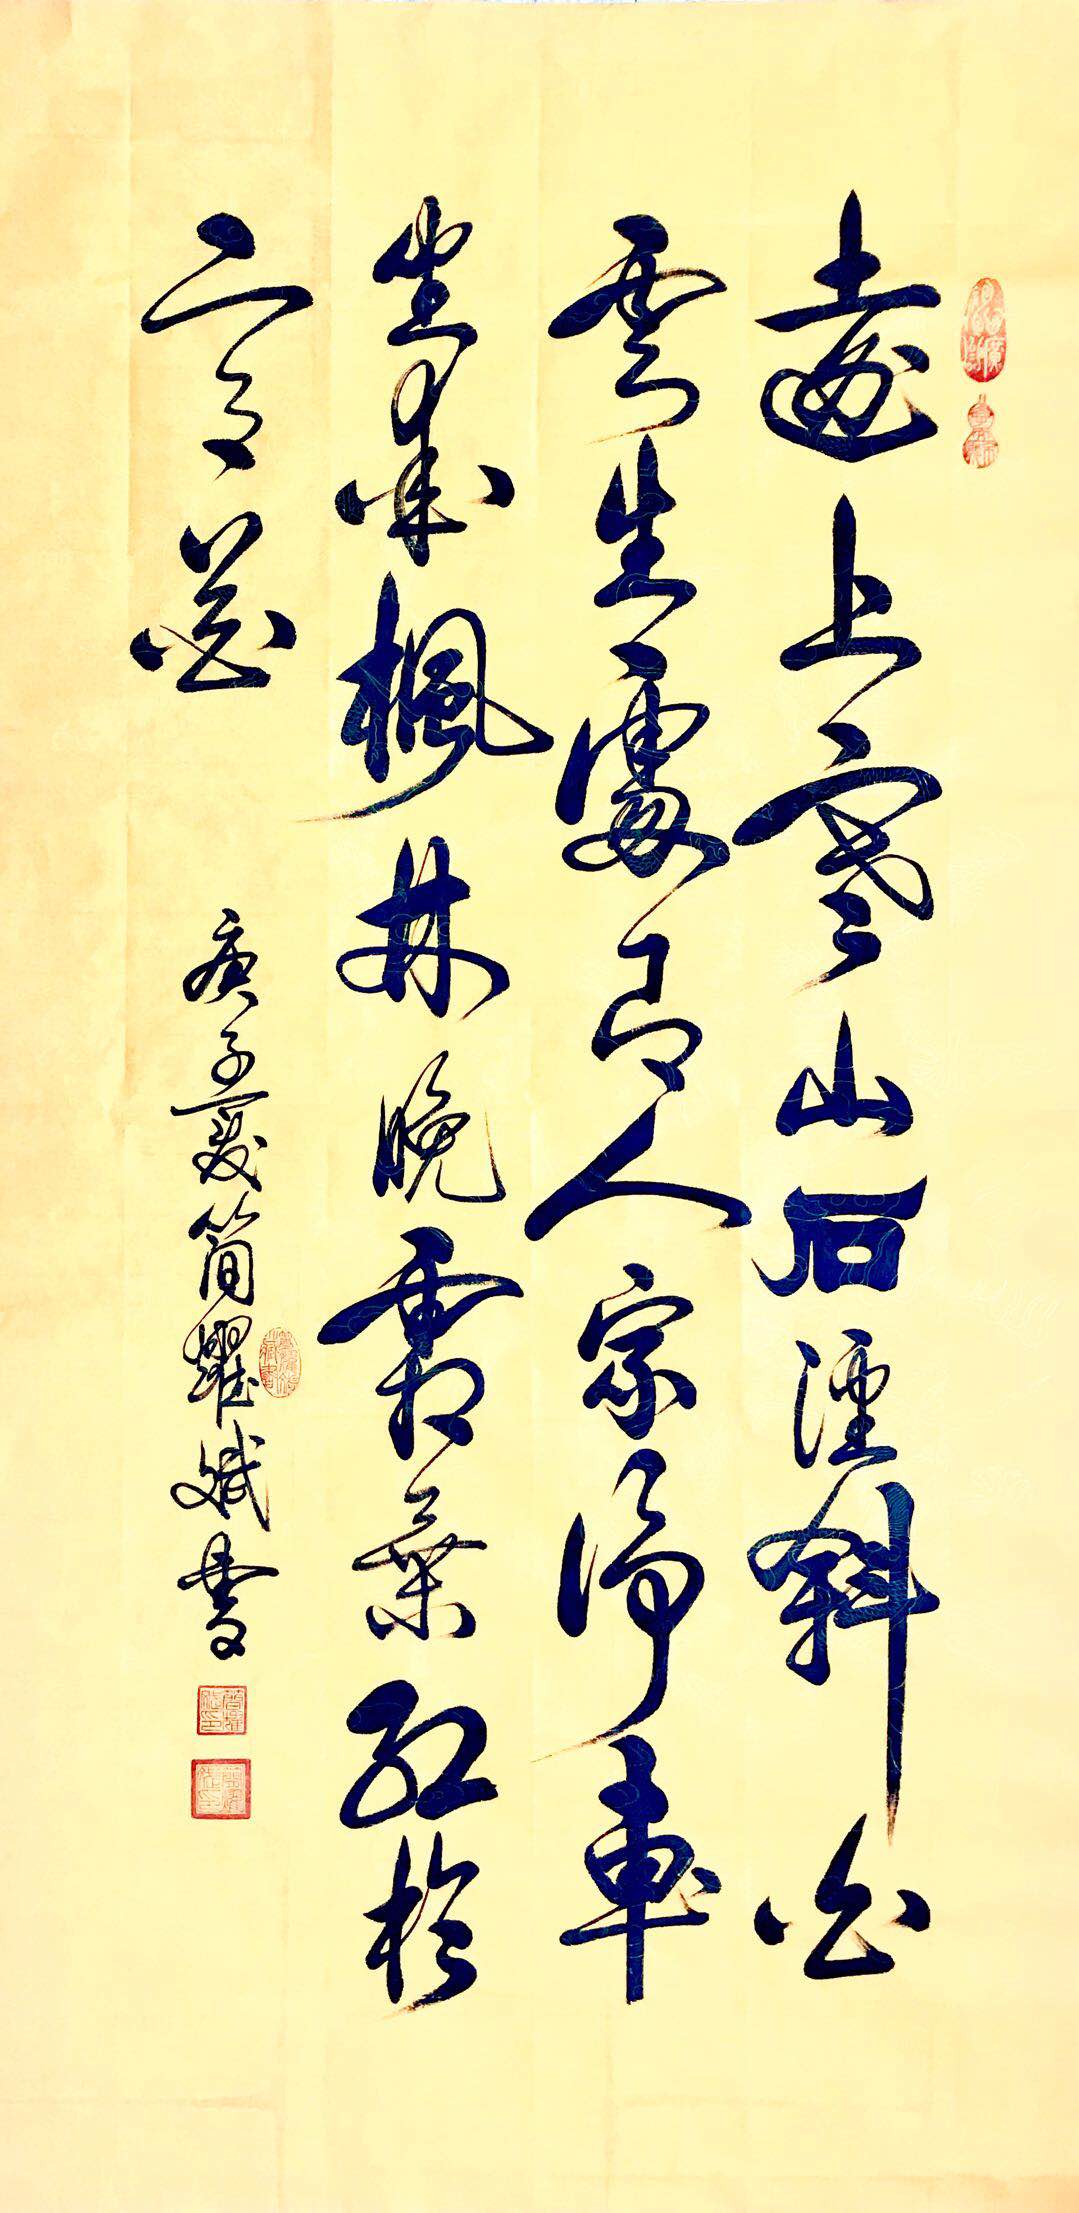 遠上寒山石徑斜白
雲生處有人家停車
坐愛楓林晚霜葉紅於
二月花
庚子夏簡耀斌書